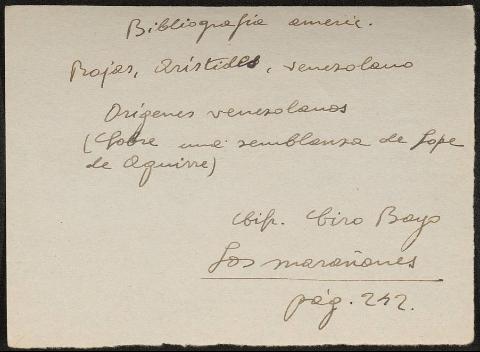 Bibliografía americ.
Rojas, Arístides, venezolano
Orígenes venezolanos
(Sobre una semblanza de Lope
de Aguirre)
Cip. Ciro Bayo
Los marañones
pág. 242.